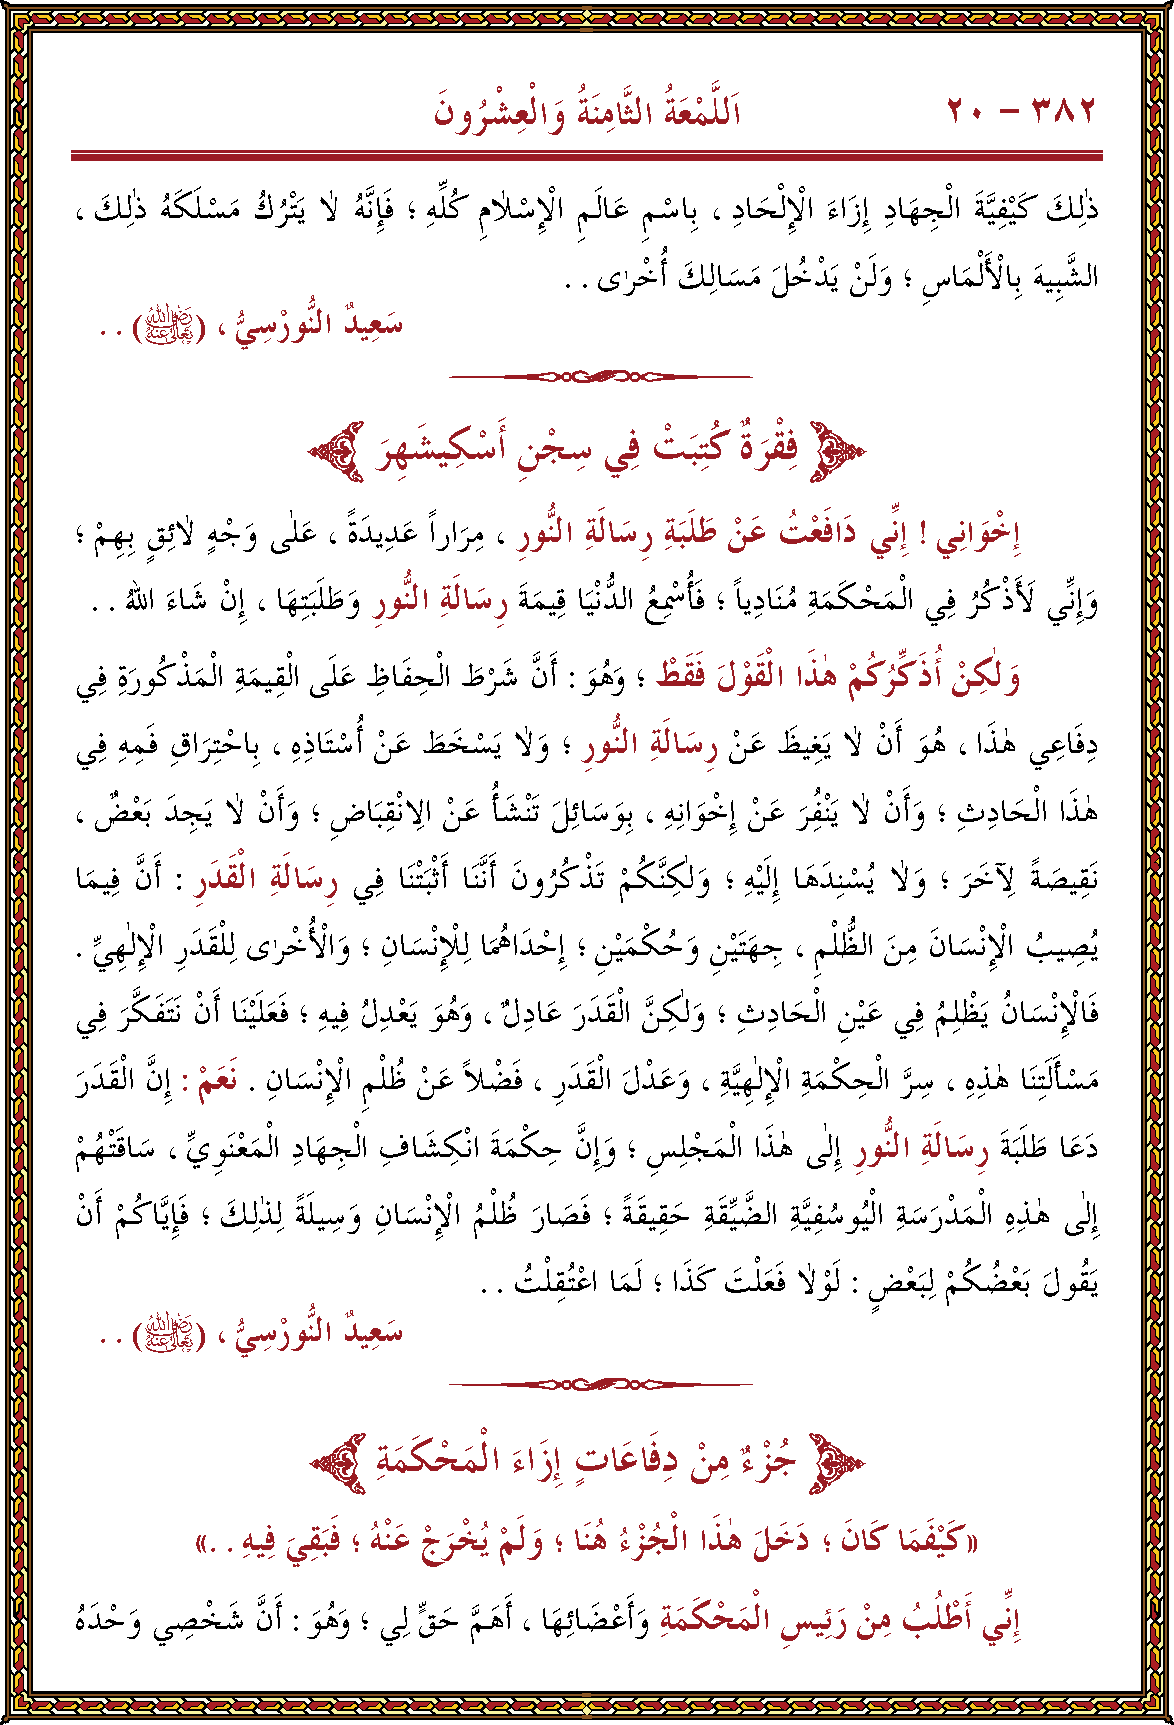 ٣٨٢ – ٢٠
اَللَّمْعَةُ الثَّامِنَةُ وَالْعِشْرُونَ
ذٰلِكَ كَيْفِيَّةَ الْجِهَادِ إِزَاءَ الْإِلْحَادِ ، بِاسْمِ عَالَمِ الْإِسْلَامِ كُلِّهِ ؛ فَإِنَّهُ لَا يَتْرُكُ مَسْلَكَهُ ذٰلِكَ ،
الشَّبِيهَ بِالْأَلْمَاسِ ؛ وَلَنْ يَدْخُلَ مَسَالِكَ أُخْرٰى . .
سَعِيدٌ النُّورْسِيُّ ، (رَضِيَ اللهُ تَعَالَى عَنْهُ) . .
فِقْرَةٌ كُتِبَتْ فِي سِجْنِ أَسْكِيشَهِرَ
إِخْوَانِي ! إِنِّي دَافَعْتُ عَنْ طَلَبَةِ رِسَالَةِ النُّورِ ، مِرَاراً عَدِيدَةً ، عَلٰى وَجْهٍ لَائِقٍ بِهِمْ ؛
وَإِنِّي لَأَذْكُرُ فِي الْمَحْكَمَةِ مُنَادِياً ؛ فَأُسْمِعُ الدُّنْيَا قِيمَةَ رِسَالَةِ النُّورِ وَطَلَبَتِهَا ، إِنْ شَاءَ اللهُ . .
وَلٰكِنْ أُذَكِّرُكُمْ هٰذَا الْقَوْلَ فَقَطْ ؛ وَهُوَ : أَنَّ شَرْطَ الْحِفَاظِ عَلَى الْقِيمَةِ الْمَذْكُورَةِ فِي
دِفَاعِي هٰذَا ، هُوَ أَنْ لَا يَغِيظَ عَنْ رِسَالَةِ النُّورِ ؛ وَلَا يَسْخَطَ عَنْ أُسْتَاذِهِ ، بِاحْتِرَاقِ فَمِهِ فِي
هٰذَا الْحَادِثِ ؛ وَأَنْ لَا يَنْفُِرَ عَنْ إِخْوَانِهِ ، بِوَسَائِلَ تَنْشَأُ عَنْ الِانْقِبَاضِ ؛ وَأَنْ لَا يَجِدَ بَعْضٌ ،
نَقِيصَةً لِآخَرَ ؛ وَلَا يُسْنِدَهَا إِلَيْهِ ؛ وَلٰكِنَّكُمْ تَذْكُرُونَ أَنَّنَا أَثْبَتْنَا فِي رِسَالَةِ الْقَدَرِ : أَنَّ فِيمَا
يُصِيبُ الْإِنْسَانَ مِنَ الظُّلْمِ ، جِهَتَيْنِ وَحُكْمَيْنِ ؛ إِحْدَاهُمَا لِلْإِنْسَانِ ؛ وَالْأُخْرٰى لِلْقَدَرِ الْإِلٰهِيِّ .
فَالْإِنْسَانُ يَظْلِمُ فِي عَيْنِ الْحَادِثِ ؛ وَلٰكِنَّ الْقَدَرَ عَادِلٌ ، وَهُوَ يَعْدِلُ فِيهِ ؛ فَعَلَيْنَا أَنْ نَتَفَكَّرَ فِي
مَسْأَلَتِنَا هٰذِهِ ، سِرَّ الْحِكْمَةِ الْإِلٰهِيَّةِ ، وَعَدْلَ الْقَدَرِ ، فَضْلاً عَنْ ظُلْمِ الْإِنْسَانِ . نَعَمْ : إِنَّ الْقَدَرَ
دَعَا طَلَبَةَ رِسَالَةِ النُّورِ إِلٰى هٰذَا الْمَجْلِسِ ؛ وَإِنَّ حِكْمَةَ انْكِشَافِ الْجِهَادِ الْمَعْنَوِيِّ ، سَاقَتْهُمْ
إِلٰى هٰذِهِ الْمَدْرَسَةِ الْيُوسُفِيَّةِ الضَّيِّقَةِ حَقِيقَةً ؛ فَصَارَ ظُلْمُ الْإِنْسَانِ وَسِيلَةً لِذٰلِكَ ؛ فَإِيَّاكُمْ أَنْ
يَقُولَ بَعْضُكُمْ لِبَعْضٍ : لَوْلَا فَعَلْتَ كَذَا ؛ لَمَا اعْتُقِلْتُ . .
سَعِيدٌ النُّورْسِيُّ ، (رَضِيَ اللهُ تَعَالَى عَنْهُ) . .
جُزْءٌ مِنْ دِفَاعَاتٍ إِزَاءَ الْمَحْكَمَةِ
«كَيْفَمَا كَانَ ؛ دَخَلَ هٰذَا الْجُزْءُ هُنَا ؛ وَلَمْ يُخْرَجْ عَنْهُ ؛ فَبَقِيَ فِيهِ . .»
إِنِّي أَطْلُبُ مِنْ رَئِيسِ الْمَحْكَمَةِ وَأَعْضَائِهَا ، أَهَمَّ حَقٍّ لِي ؛ وَهُوَ : أَنَّ شَخْصِي وَحْدَهُ